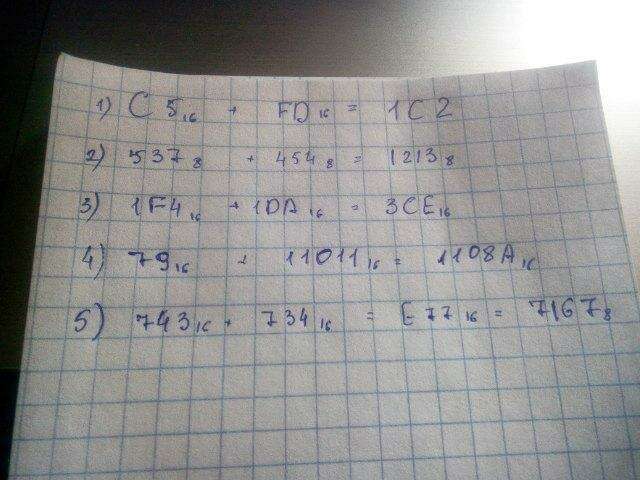 1) C5₁₆ + FD₁₆ = 1C2
2) 537₈ + 454₈ = 1213₈
3) 1F4₁₆ + 1DA₁₆ = 3CE₁₆
4) 79₁₆ + 11011₁₆ = 1108A₁₆
5) 743₁₆ + 734₁₆ = E77₁₆ = 7167₈